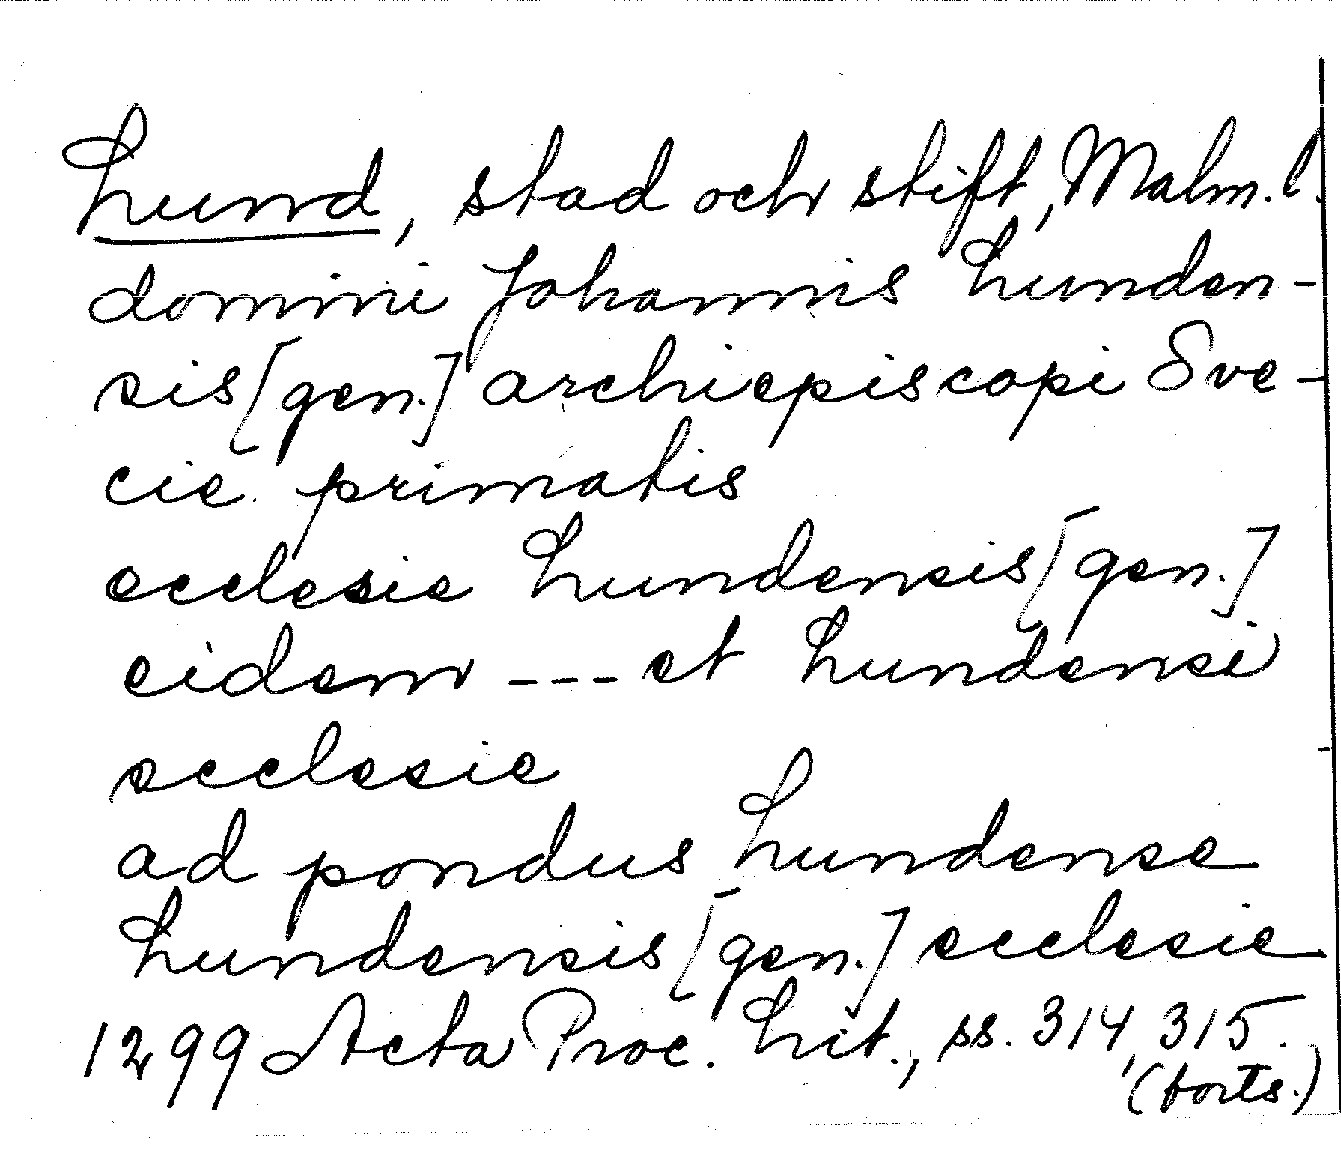 Lund, stad och stift, Malm. l.
domini Johannis Lunden-
sis [gen.] archiepiscopi Sve-
cie primatis
ecclesie Lundensis [gen.]
eidem --- et Lundensi
ecclesie
ad pondus Lundense
Lundensis [gen.] ecclesie
1299 Acta Proc. Lit., ss. 314, 315.
(forts.)